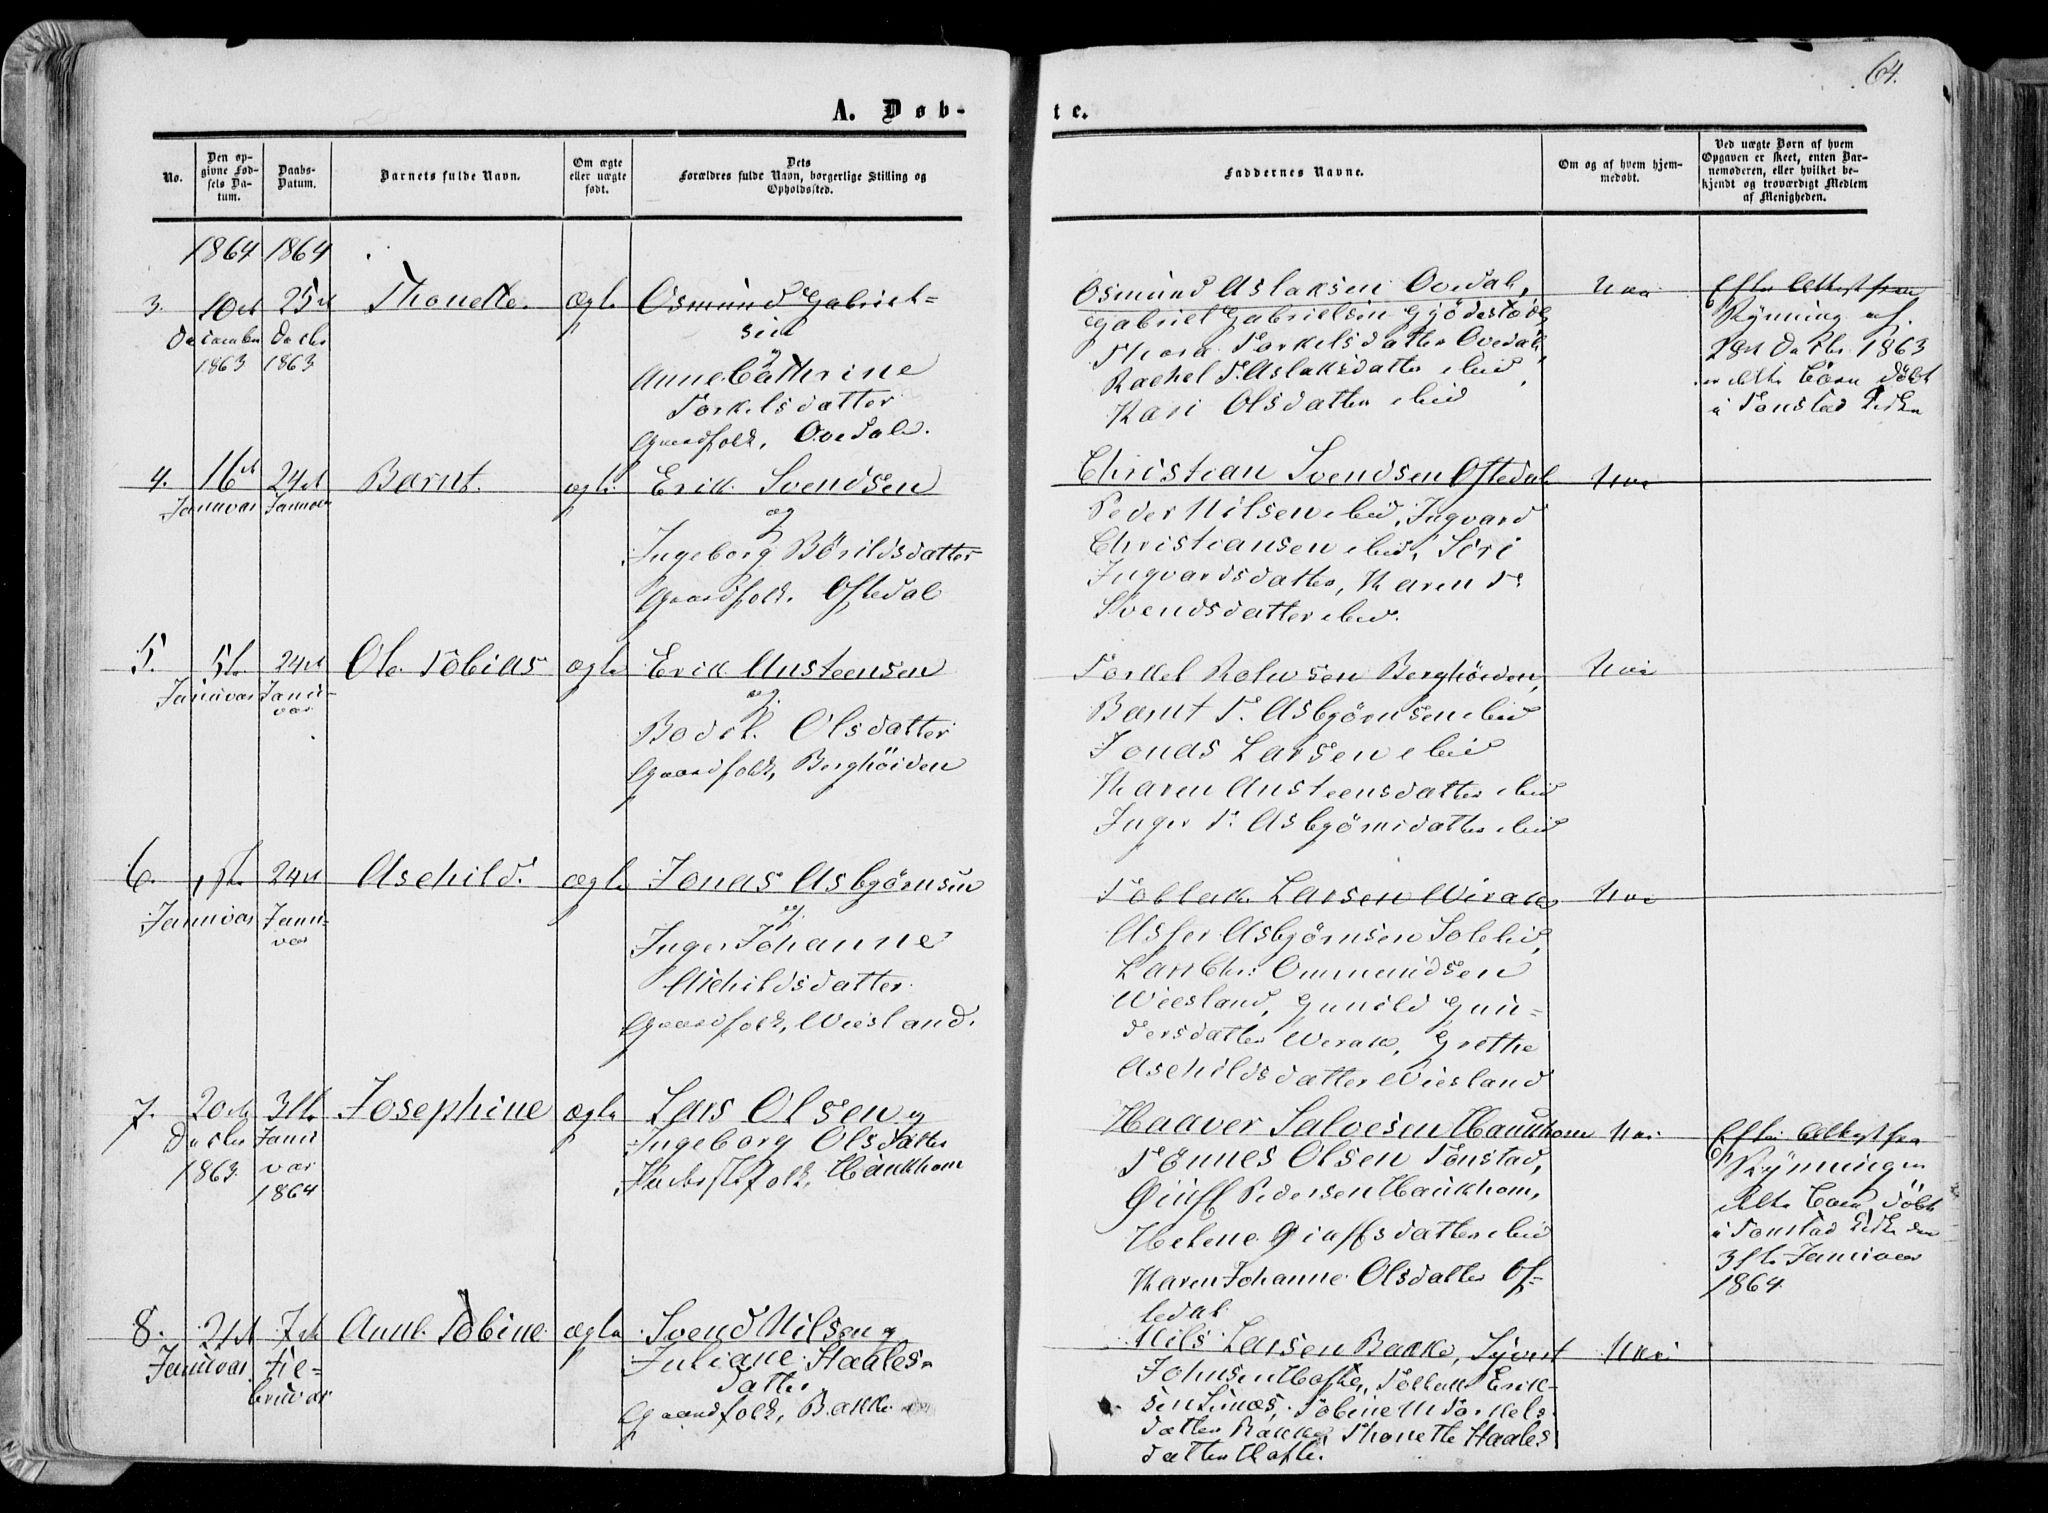 64.
A. Døb-
te.
No.
Den op-
givne Fød-
sels Da-
tum.
Daabs-
Datum.
Barnets fulde Navn.
Om ægte
eller uægte
født.
Dets
Forældres fulde Navn, borgerlige Stilling og
Opholdssted.
Faddernes Navne.
Om og af hvem hjem-
medøbt.
Ved uægte Børn af hvem
Opgaven er skeet, enten Bar-
nemoderen, eller hvilket be-
kjendt og troværdigt Medlem
af Menigheden.
1864 1864
3. 10de 25de Thonette. ægte Osmund Gabriel-
December Decbr sen
1863 1863 og
Anne Cathrine
Torkelsdatter
Gaardfolk, Ovedal.
Osmund Aslaksen Ovedal,
Gabriel Gabrielsen
Thora Torkelsdatter Ovedal,
Rachel T. Aslaksdatter ibid,
Kari Olsdatter ibid
Nei
Efter Attest fra
Rynning af
28de Decbr. 1863
er dette Barn døbt
i Tonstad Kirke
4. 16de 24de Barnt. ægte Erik Svendsen
Januar Januar og
Ingeborg Børildsdatter
Gaardfolk. Oftedal
Christian Svendsen Oftedal
Peder Nilsen ibid, Ingvard
Christiansen ibid, Siri
Ingvardsdatter, Karen T.
Svendsdatter ibid.
Nei
5. 5te 24de Ole Tobias ægte Erik Austeensen
Januar Janu-
var og
Bodil Olsdatter
Gaardfolk, Berghöiden
Torkel Berghöiden,
Barnt T. Asbjørnsen ibid
Jonas Larsen ibid
Karen Austeensdatter ibid
Inger T. Asbjørnsdatter ibid
Nei
6. 24de Aschild. ægte Jonas Asbjørnsen
Januar Janu-
var og
Inger Johanne
Aschildsdatter
Gaardfolk, Wiesland.
Tollak Larsen Wirak
Asser Asbjørnsen Solebid,
Lars Chr. Ommundsen
Wiesland, Gunild Gun-
dersdatter Wirak, Grethe
Aschildsdatter Wiesland
Nei
7. 20de 31te Josephine ægte Lars Olsen og
Decbr Janu- Ingeborg Olsdatter
1863 var folk, Haukhom
1864
Haaver Salvesen Haukhom
Tönnes Olsen Tonstad,
Giuff Pedersen Haukhom,
Helene Giuffsdatter ibid
Karen Johanne Olsdatter Of-
tedal
Nei
Efter Attest fra
Rynning er
dette Barn døbt
i Tonstad Kirke den
31te Januar
1864
8. 2de 7de Anne Tobine ægte Svend Nilsen og
Januar Fe-
bruar Juliane Haales-
datter
Gaardfolk, Bakke
Nils Larsen Bakke, Syvert
Johnsen Hafte, Tollak Erik-
sen Sines, Tobine M Torkels-
datter Bakke, Thonette Haales-
datter Hafte.
Nei